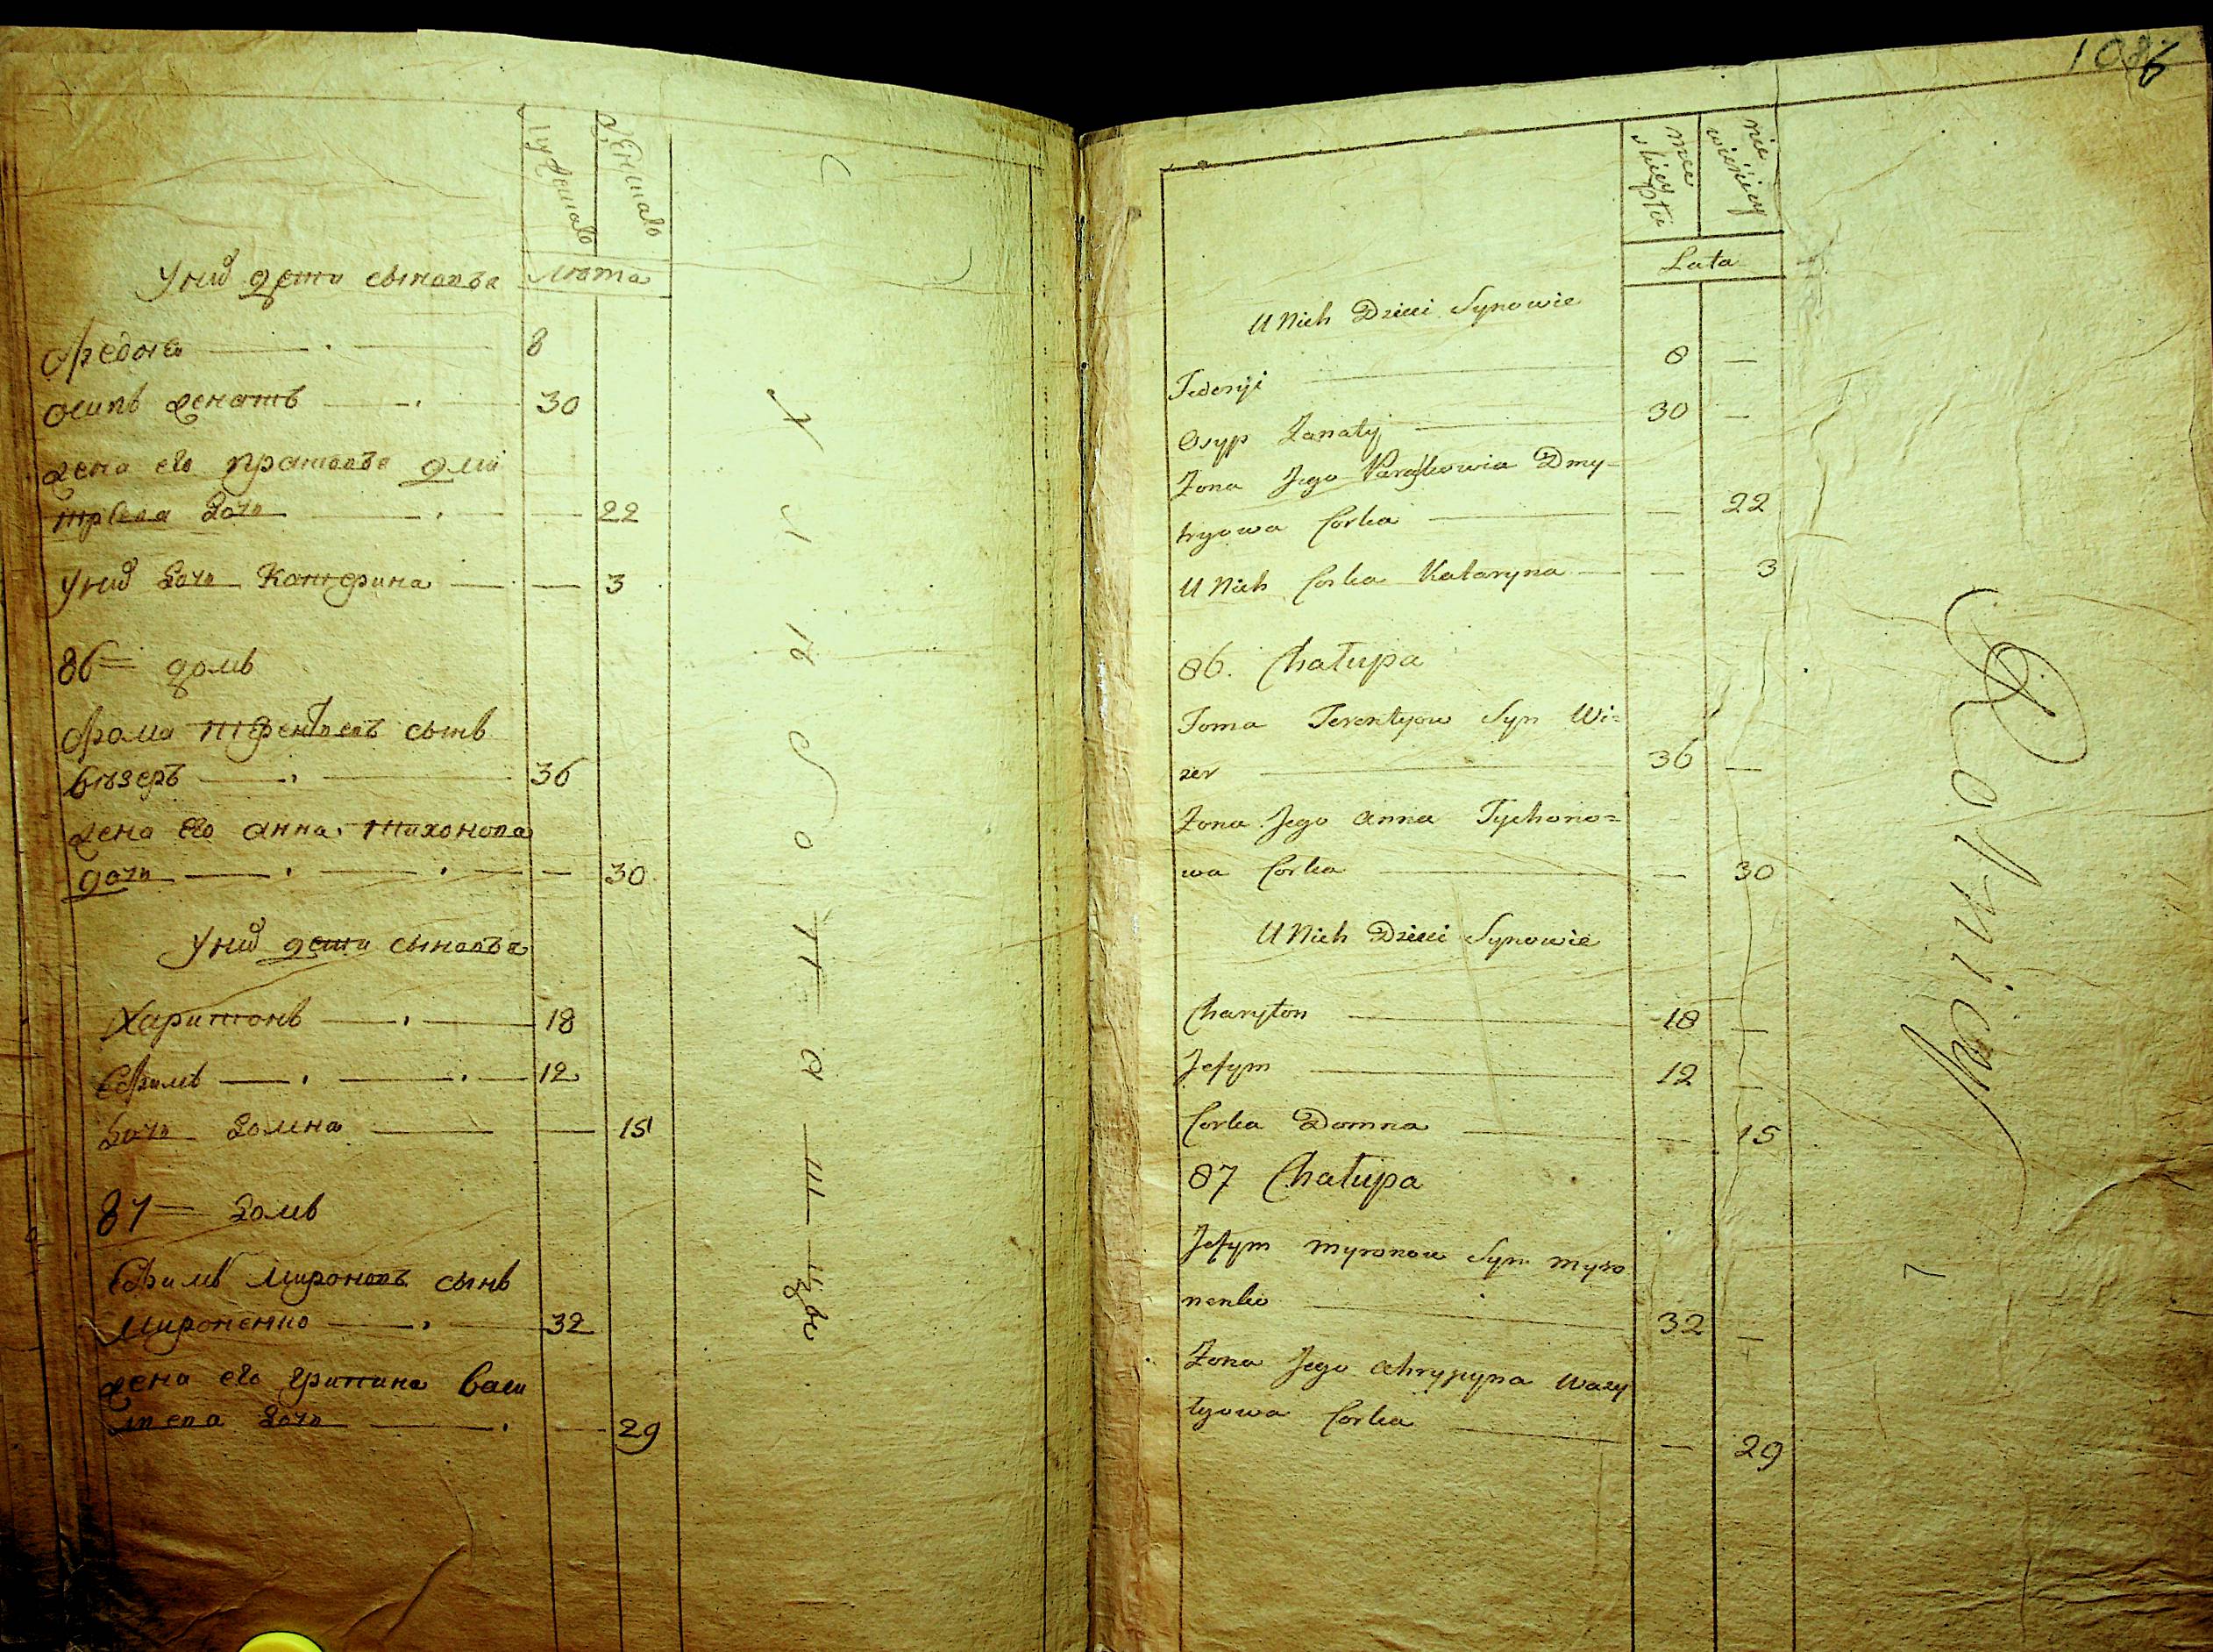 Лѣта
Унихъ дети сыновья
Федоне 8
Осипъ женатъ 30
жена его прасковья дми
триева дочь 22
Унихъ дочь Катерина 3
86 домъ
Фома терентьевъ сынъ
визеръ 36
жена его анна тихонова
дочь 30
Унихъ дети сыновья
Харитонъ 18
Ефимъ 12
дочь домна 15
87 домъ
Ефимъ мироновъ сынъ
мироненко 32
жена его грипина васи
лиева дочь 29
1086
męz
skiey
płci
nie
wieściey
Lata
U Nich Dzieci Synowie
Fedosyi 8 —
Osyp Żanaty 30 —
Żona Jego Paraskowia Dmy-
tryowa Corka — 22
U Nich Corka Kataryna — 3
86. Chałupa
Foma Terentyow Syn Wi=
zer 36 —
Żona Jego Anna Tychono=
wa Corka — 30
U Nich Dzieci Synowie
Charyton 18 —
Jefym 12 —
Corka Domna — 15
87 Chałupa
Jefym Myronow Syn Myro
nenko 32 —
Żona Jego Ahrypyna Wasy
lyowa Corka — 29
Rolnicy